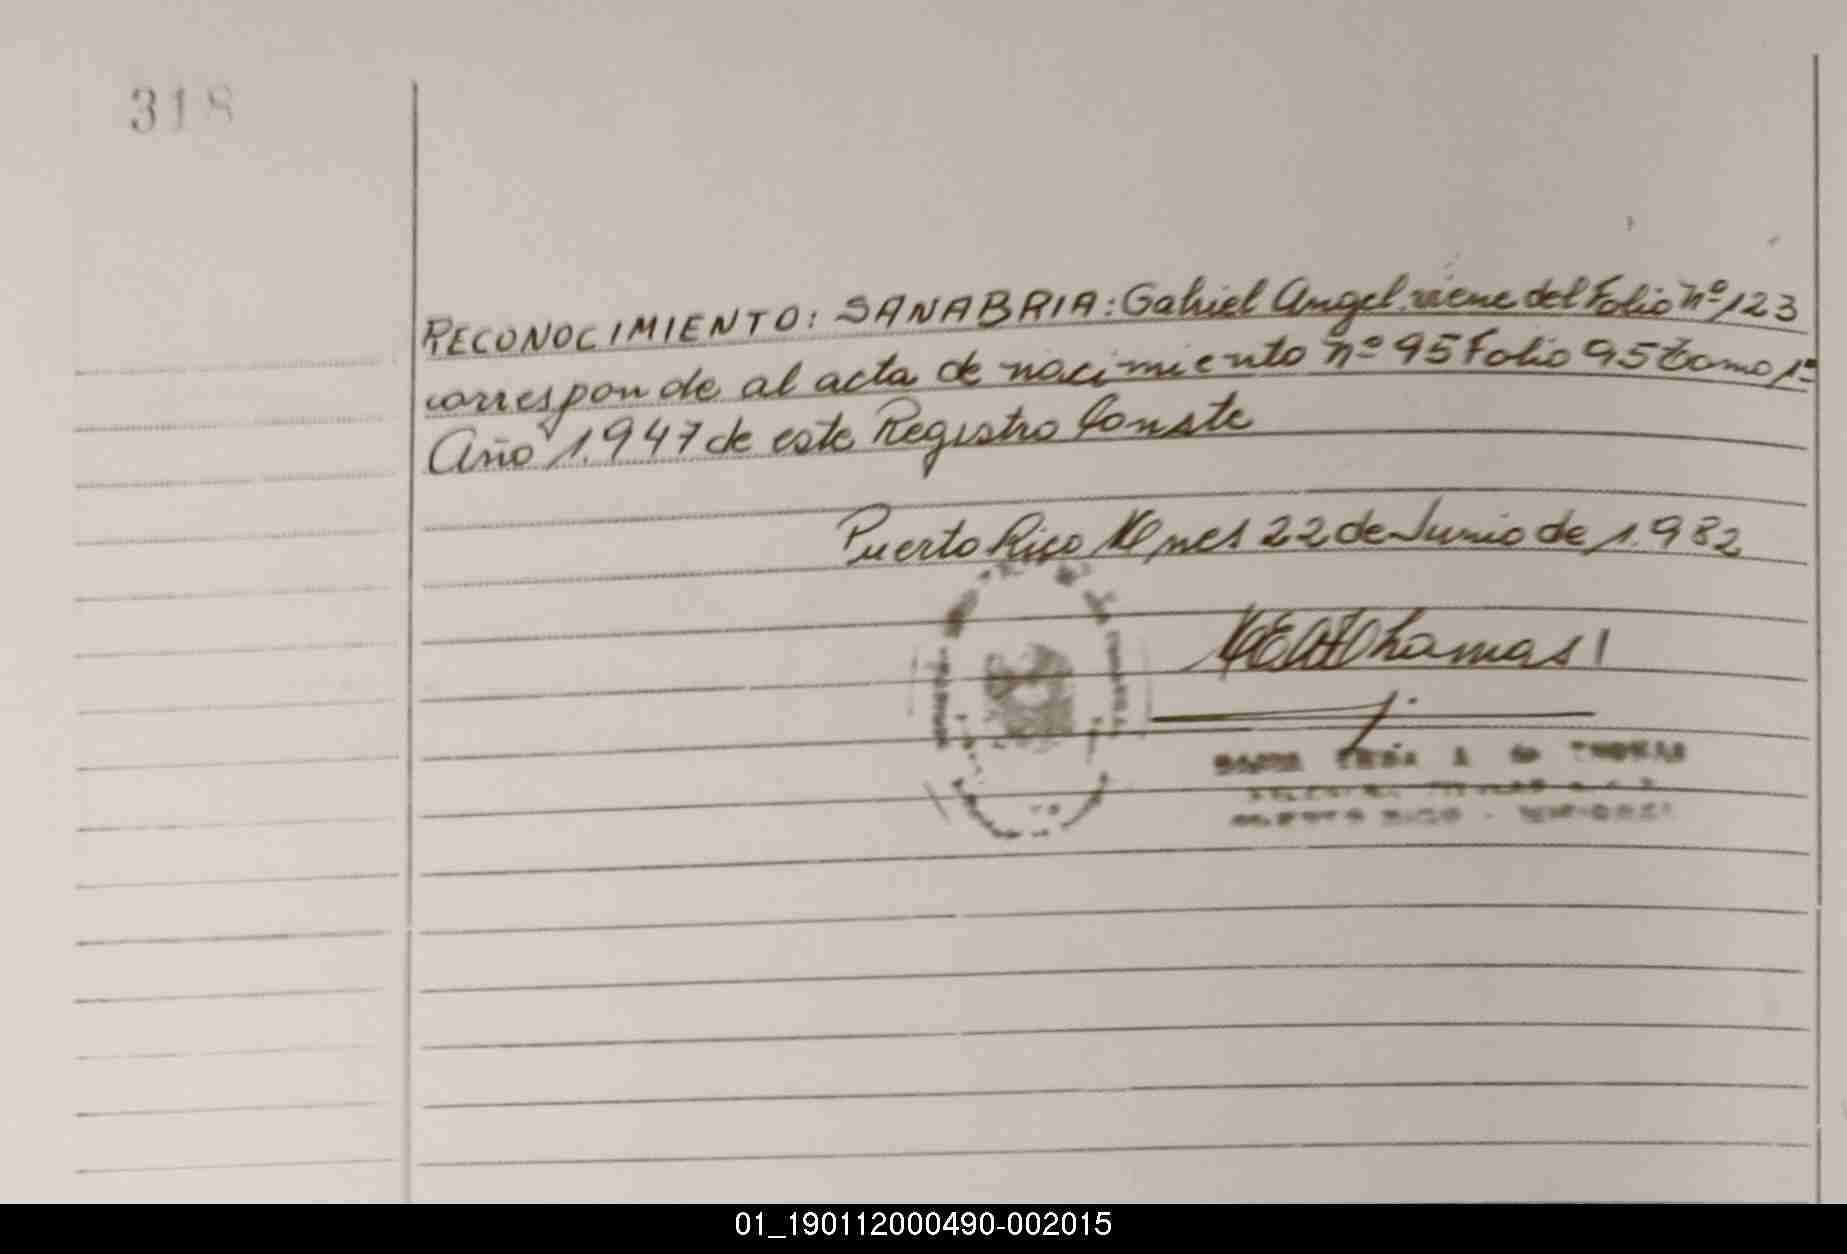 318
RECONOCIMIENTO: SANABRIA: Gabriel Angel. viene del Folio nº 123
corresponde al acta de nacimiento nº 95 Folio 95 tomo 1º
Año 1.947 de este Registro Conste
Puerto Rico Mnes 22 de Junio de 1.982
PUERTO RICO - MISIONES
01_190112000490-002015